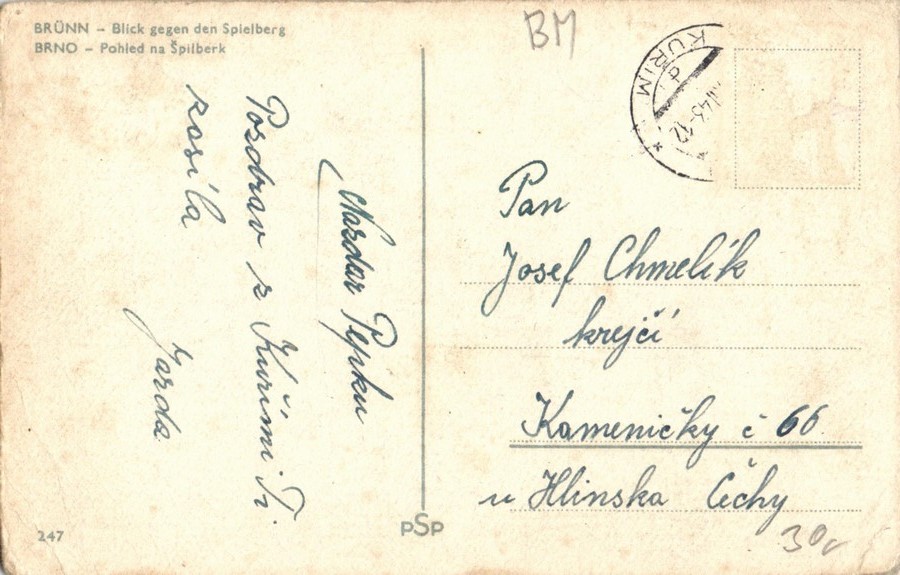 BRÜNN – Blick gegen den Spielberg
BRNO – Pohled na Špilberk
BM
KUŘIM
43-12
Nazdar Pepku
Pozdrav z Kuřimi Ti
zasílá
Jarda
Pan
Josef Chmelík
krejčí
Kameničky č 66
u Hlinska Čechy
247
PSP